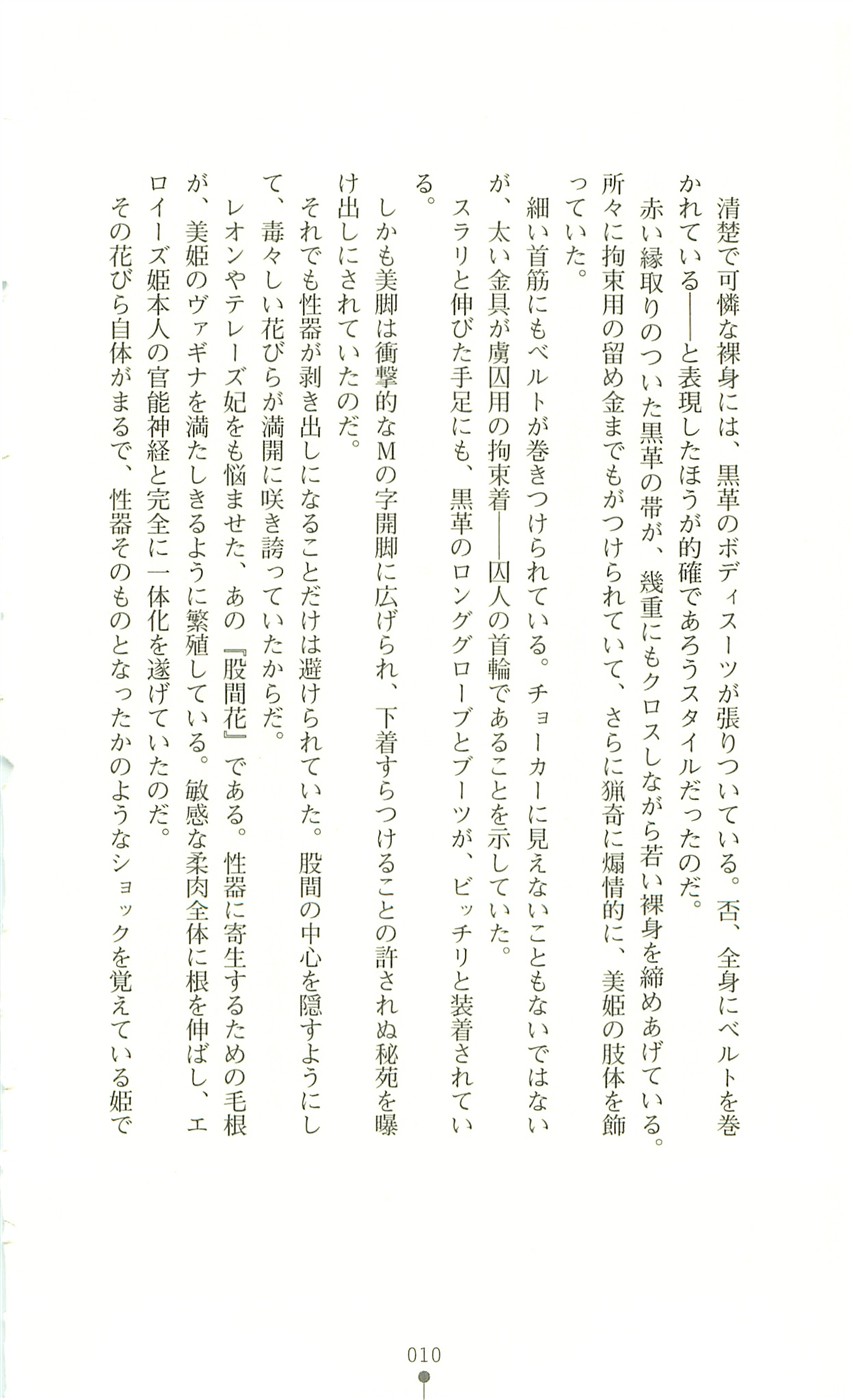 清楚で可憐な裸身には、黒革のボディスーツが張りついている。否、全身にベルトを巻
かれている――と表現したほうが的確であろうスタイルだったのだ。
赤い縁取りのついた黒革の帯が、幾重にもクロスしながら若い裸身を締めあげている。
所々に拘束用の留め金までもがつけられていて、さらに猟奇に煽情的に、美姫の肢体を飾
っていた。
細い首筋にもベルトが巻きつけられている。チョーカーに見えないこともないではない
が、太い金具が虜囚用の拘束着――囚人の首輪であることを示していた。
スラリと伸びた手足にも、黒革のロンググローブとブーツが、ビッチリと装着されてい
る。
しかも美脚は衝撃的なMの字開脚に広げられ、下着すらつけることの許されぬ秘苑を曝
け出しにされていたのだ。
それでも性器が剥き出しになることだけは避けられていた。股間の中心を隠すようにし
て、毒々しい花びらが満開に咲き誇っていたからだ。
レオンやテレーズ妃をも悩ませた、あの『股間花』である。性器に寄生するための毛根
が、美姫のヴァギナを満たしきるように繁殖している。敏感な柔肉全体に根を伸ばし、エ
ロイーズ姫本人の官能神経と完全に一体化を遂げていたのだ。
その花びら自体がまるで、性器そのものとなったかのようなショックを覚えている姫で
010